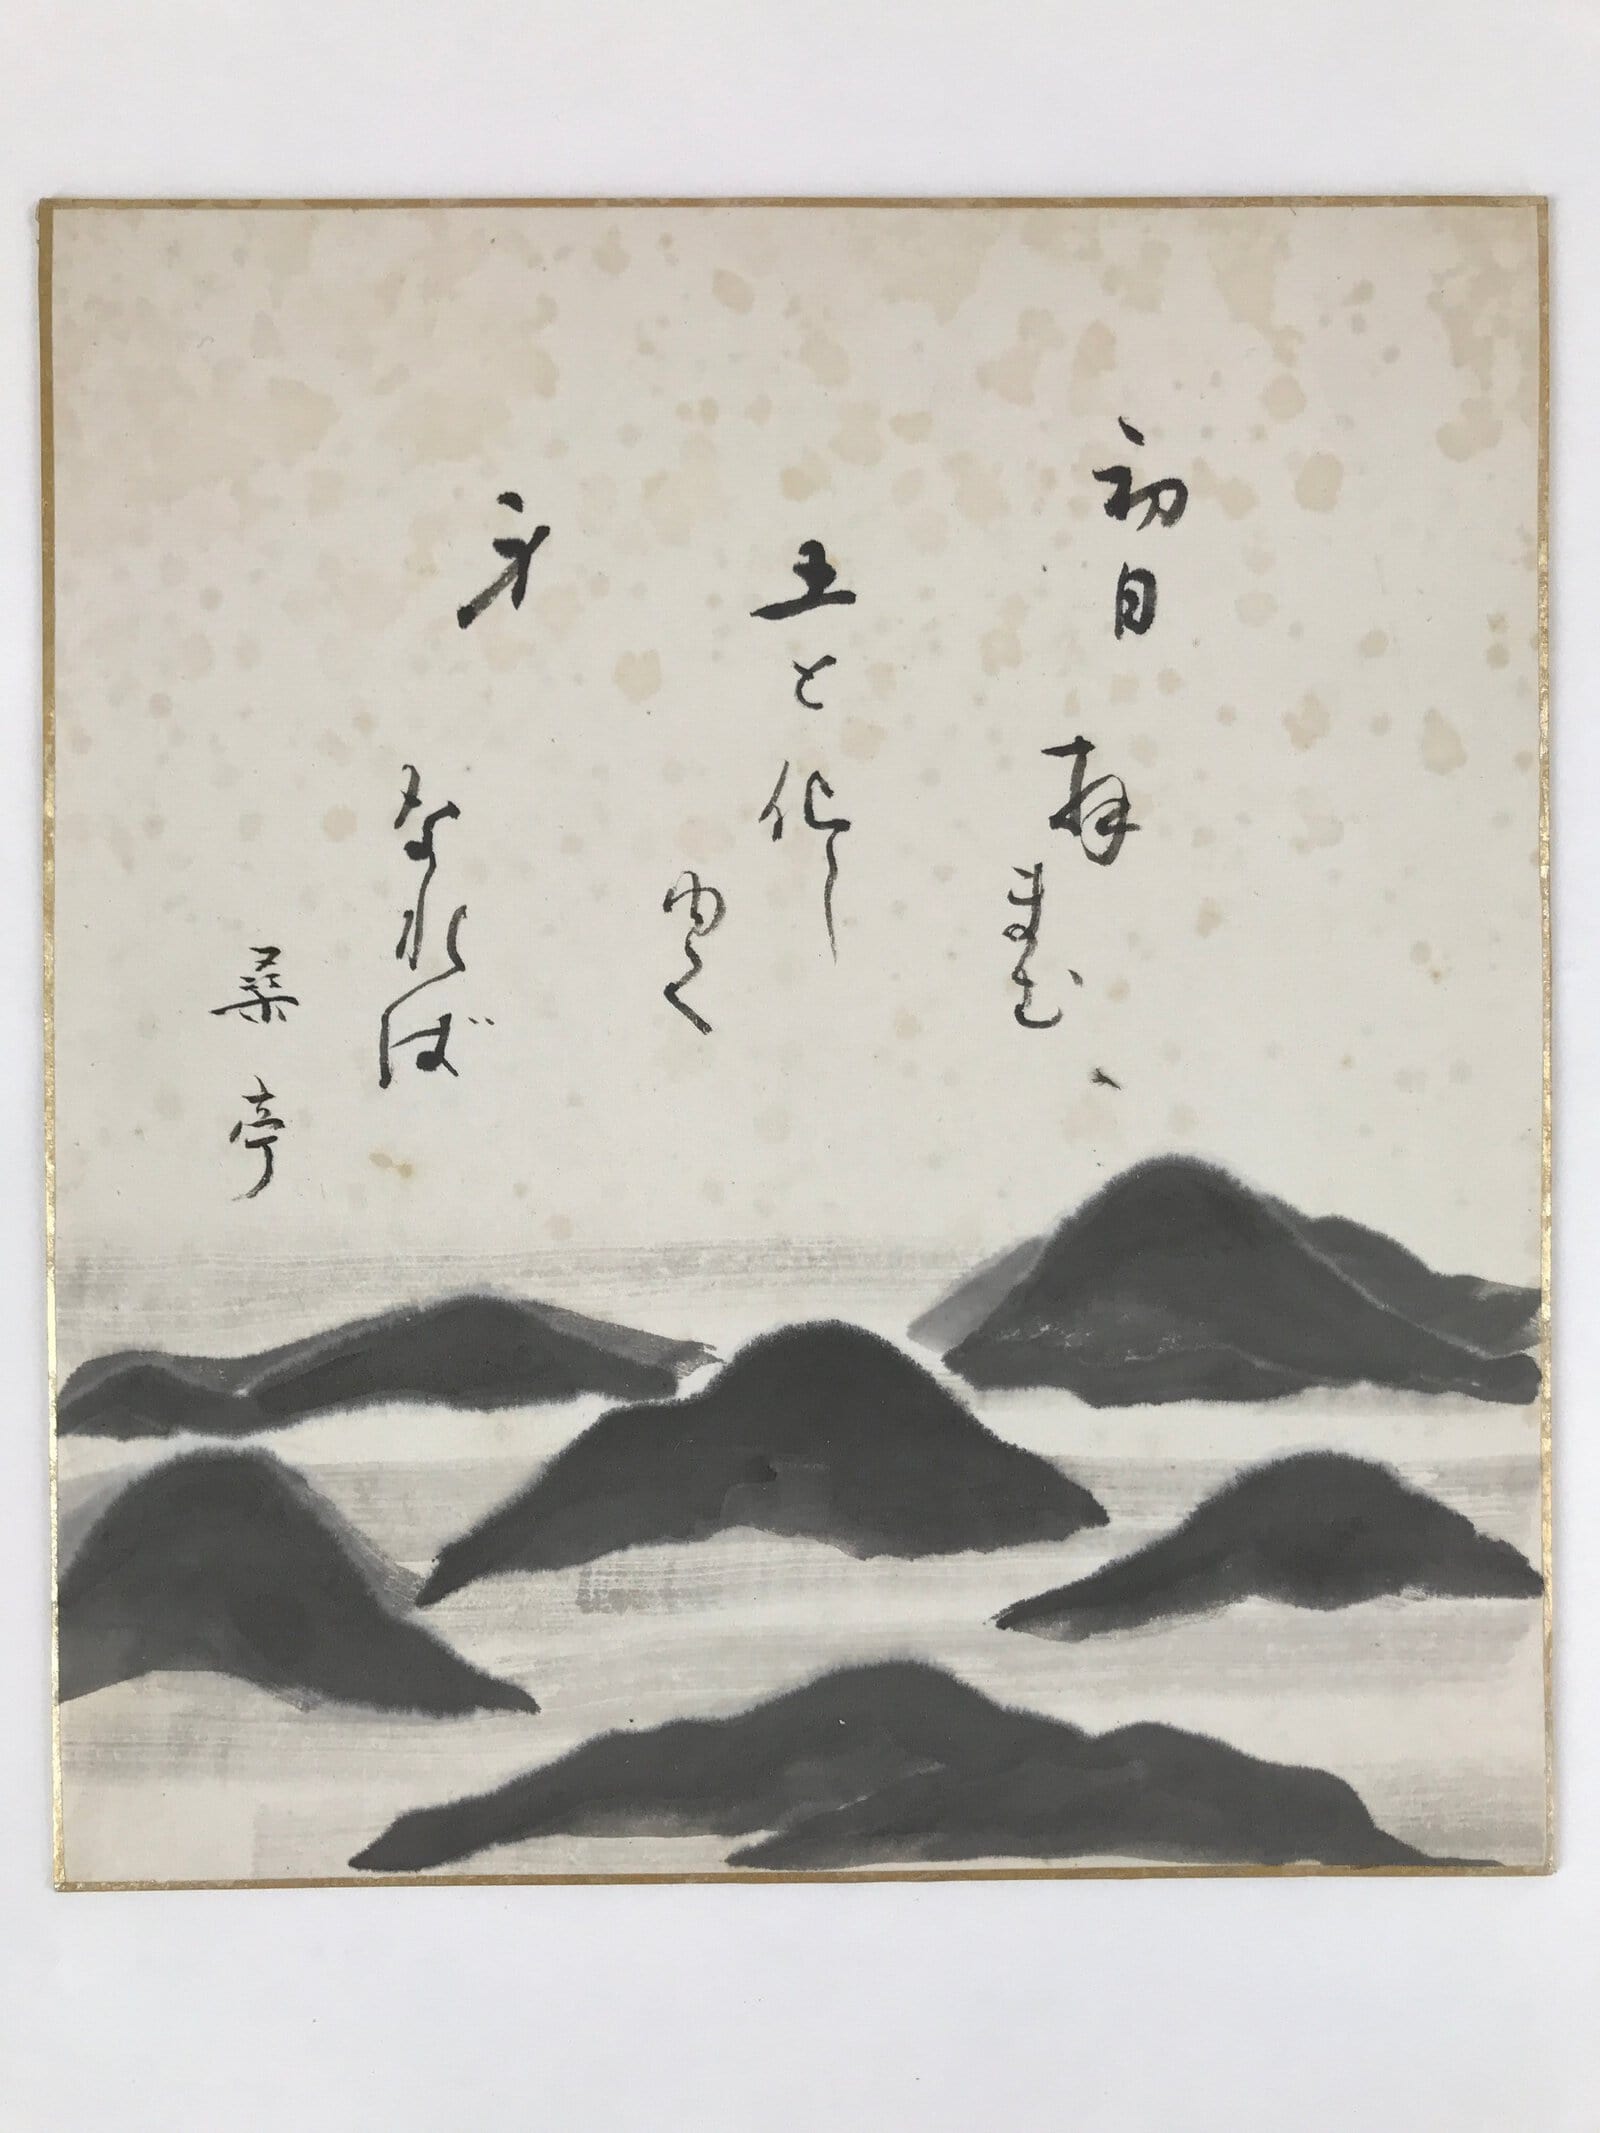 初日拝まむ
土と化しゆく
身なれば
桑亭